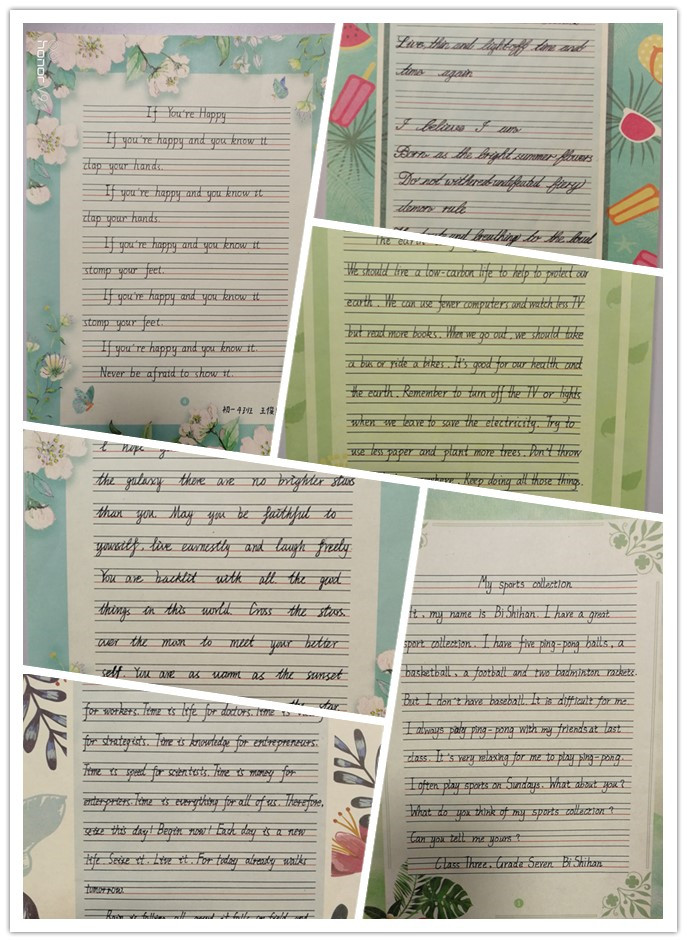 honor
If You're Happy
If you're happy and you know it
clap your hands.
If you're happy and you know it
clap your hands.
If you're happy and you know it
stomp your feet.
If you're happy and you know it
stomp your feet.
If you're happy and you know it.
Never be afraid to show it.
初一43班
Live, thin and light off time and
time again
I believe I am
Born as the bright summer flowers
Do not withered undefeated fiery
demon rule
and breathing to the load
The earth
We should live a low-carbon life to help to protect our
earth. We can use fewer computers and watch less TV
but read more books. When we go out, we should take
a bus or ride a bikes. It's good for our health and
the earth. Remember to turn off the TV or lights
when we leave to save the electricity. Try to
use less paper and plant more trees. Don't throw
Keep doing all those things.
I hope
the galaxy there are no brighter stars
than you. May you be faithful to
yourself, live earnestly and laugh freely
You are backlit with all the good
things in this world. Cross the stars
over the moon to meet your better
self. You are as warm as the sunset
for workers. Time is life for doctors. Time is
for strategists. Time is knowledge for entrepreneurs.
Time is speed for scientists. Time is money for
enterprises. Time is everything for all of us. Therefore,
seize this day! Begin now! Each day is a new
life. Seize it. Live it. For today already walks
tomorrow.
Rain is falling all
My sports collection
my name is Bi Shihan. I have a great
sport collection. I have five ping-pong balls, a
basketball, a football and two badminton rackets.
But I don't have baseball. It is difficult for me.
I always play ping-pong with my friends at last
class. It's very relaxing for me to play ping-pong.
I often play sports on Sundays. What about you?
What do you think of my sports collection?
Can you tell me yours?
Class Three, Grade Seven Bi Shihan